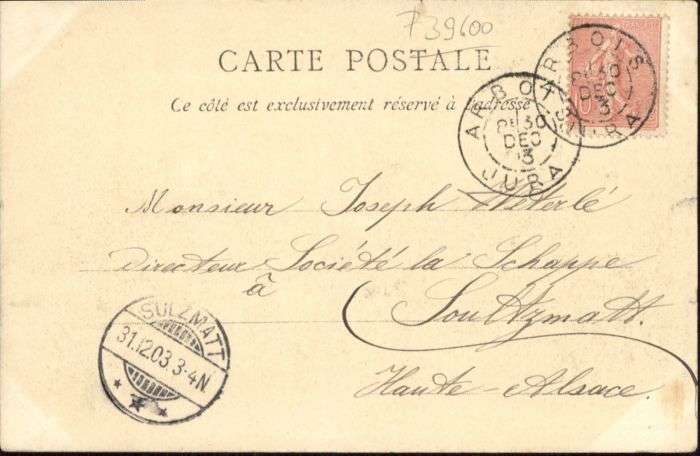 739600
CARTE POSTALE
Ce côté est exclusivement réservé à l'adresse
ARBOIS
30
DEC
03
JURA
ARBOIS
30
DEC
3
JURA
Monsieur Joseph
Directeur Société la Schappe
à Soultzmatt.
Haute-Alsace.
SULZMATT
31.12.03.3-4N